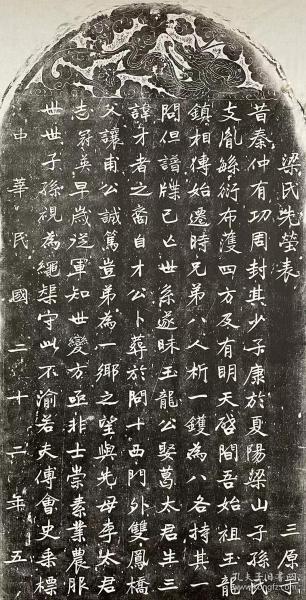 梁氏先塋表
三原
昔秦仲有功周封其少子康於夏陽梁山子孫
支胤緜衍布濩四方及有明天啓間吾始祖玉龍
鎮相傳始遷時兄弟八人析一鑊為八各持其一
閱但譜牒已亡世系遂昧玉龍公娶葛太君生三
諱才者之裔自才公卜葬於閻十西門外雙鳳橋
父讓甫公誠篤豈弟為一鄉之望與先母李太君
志冠英早歲從軍知世變方亟非士崇素業農服
世世子孫視為繩榘守此不渝若夫傅會史乘標
中華民國二十二年五